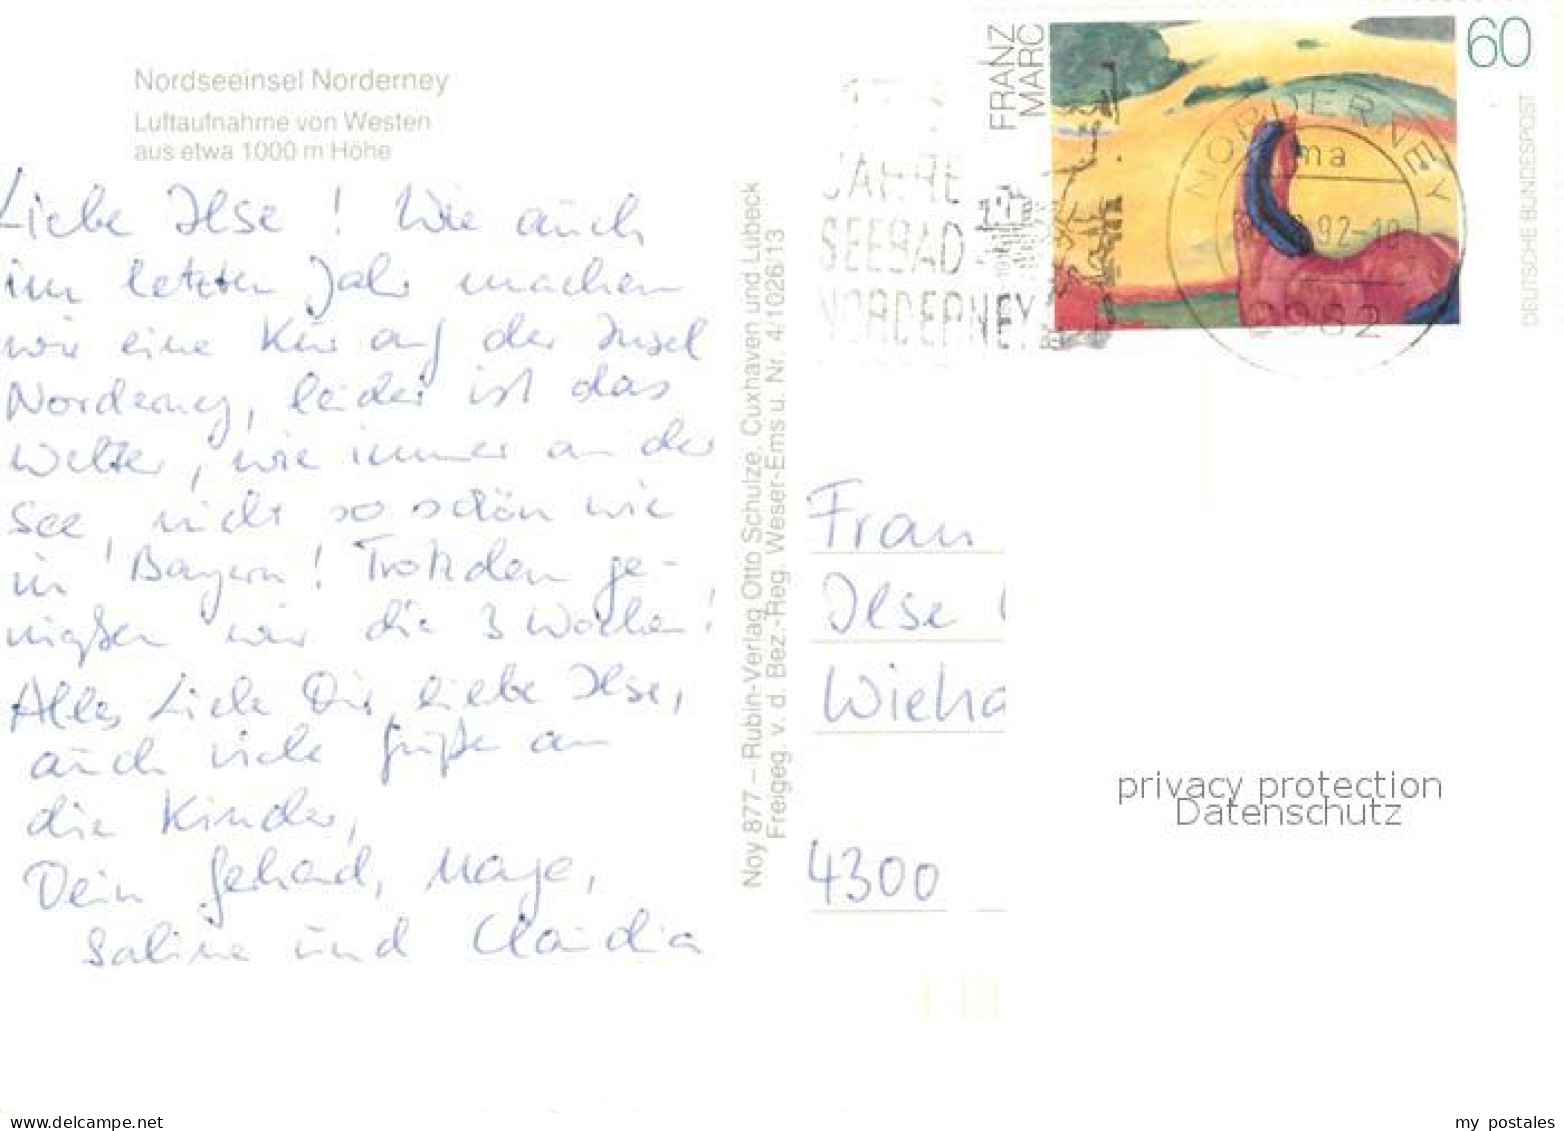 Nordseeinsel Norderney
Luftaufnahme von Westen
aus etwa 1000 m Höhe
Liebe Ilse! Wie auch
im letzten Jahr machen
wir eine Kur auf der Insel
Norderney, leider ist das
Wetter, wie immer an der
See, nicht so schön wie
in Bayern! Trotzdem ge-
nießen wir die 3 Wochen!
Alles Liebe Dir, liebe Ilse,
auch viele Grüße an
die Kinder,
Dein Gerhard,
Sabine und Claudia
Noy 877 – Rubin-Verlag Otto Schulze, Cuxhaven und Lübeck
Freigeg. v. d. Bez.-Reg. Weser-Ems u. Nr. 4/1026/13
JAHRE
SEEBAD
NORDERNEY
FRANZ
MARC
60
DEUTSCHE BUNDESPOST
NORDERNEY
ma
92-10
2982
Frau
Ilse
Wieha
4300
privacy protection
Datenschutz
www.delcampe.net
my_postales